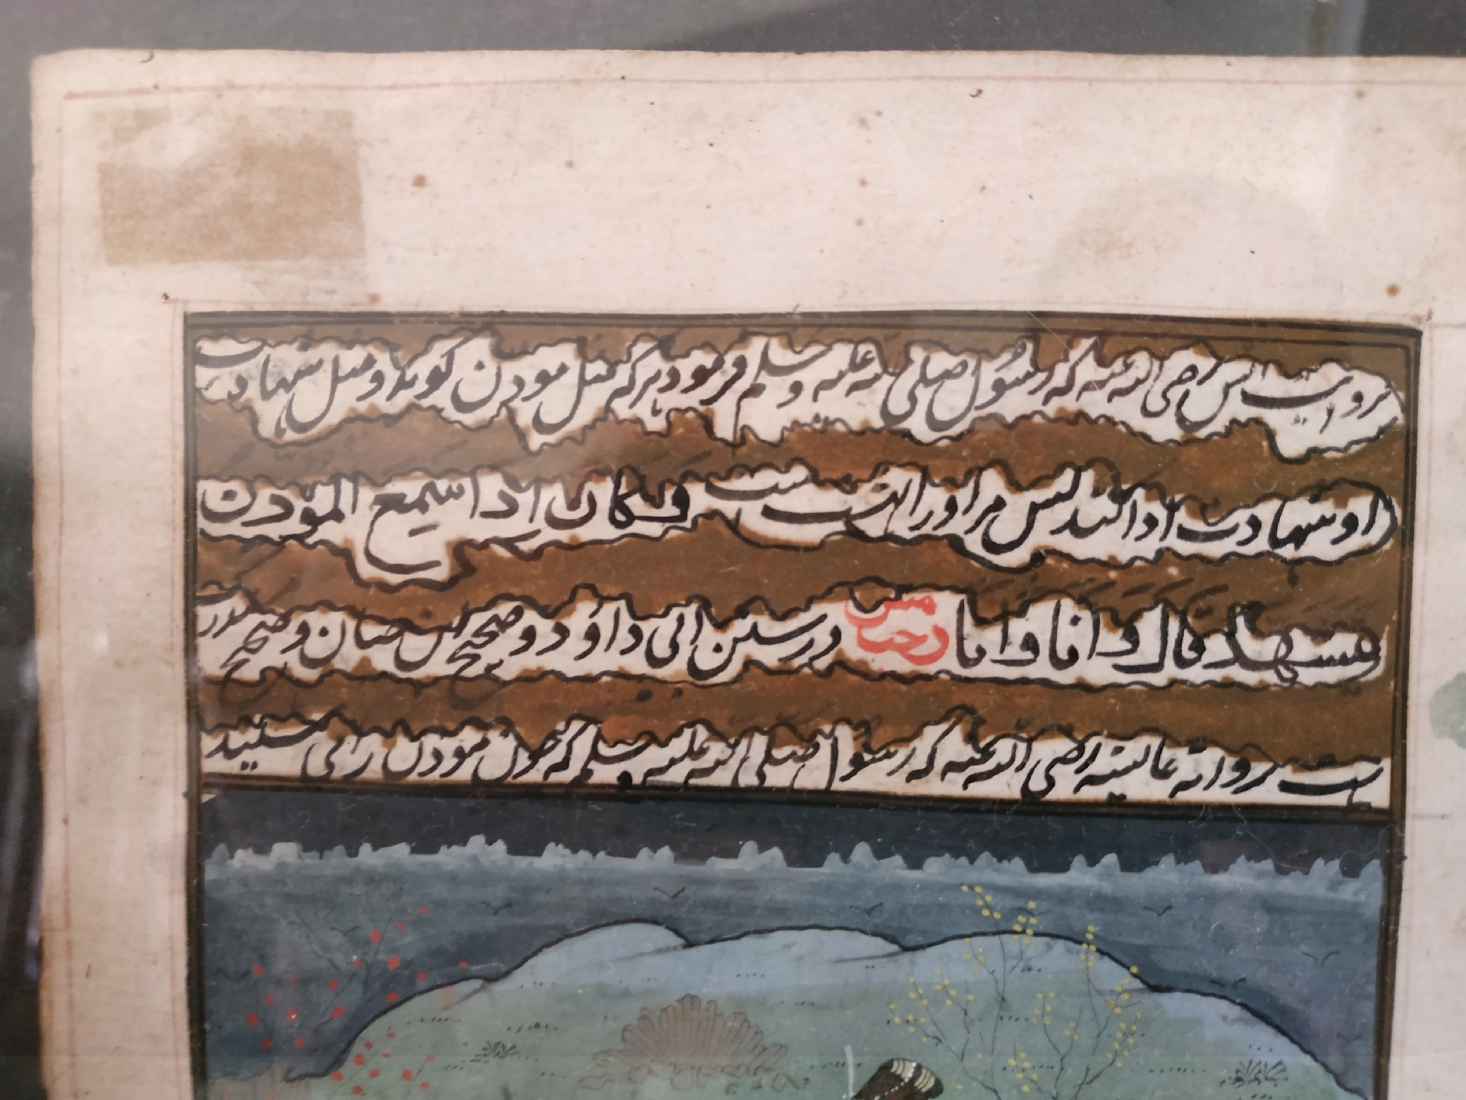 بروایت انس رضی الله عنه که رسول صلی الله علیه وسلم فرمود هر که مثل مودن کوید و مثل شهادت
او شهادت ادا کند پس مر او را است فکان اذا سمع المودن
یتشهد قال وانا وانا در سنن ابی داود و صحیح ابن حبان و صحیح
بروایه عایشه رضی الله عنه که رسول صلی الله علیه وسلم که چون مودن را می شنید